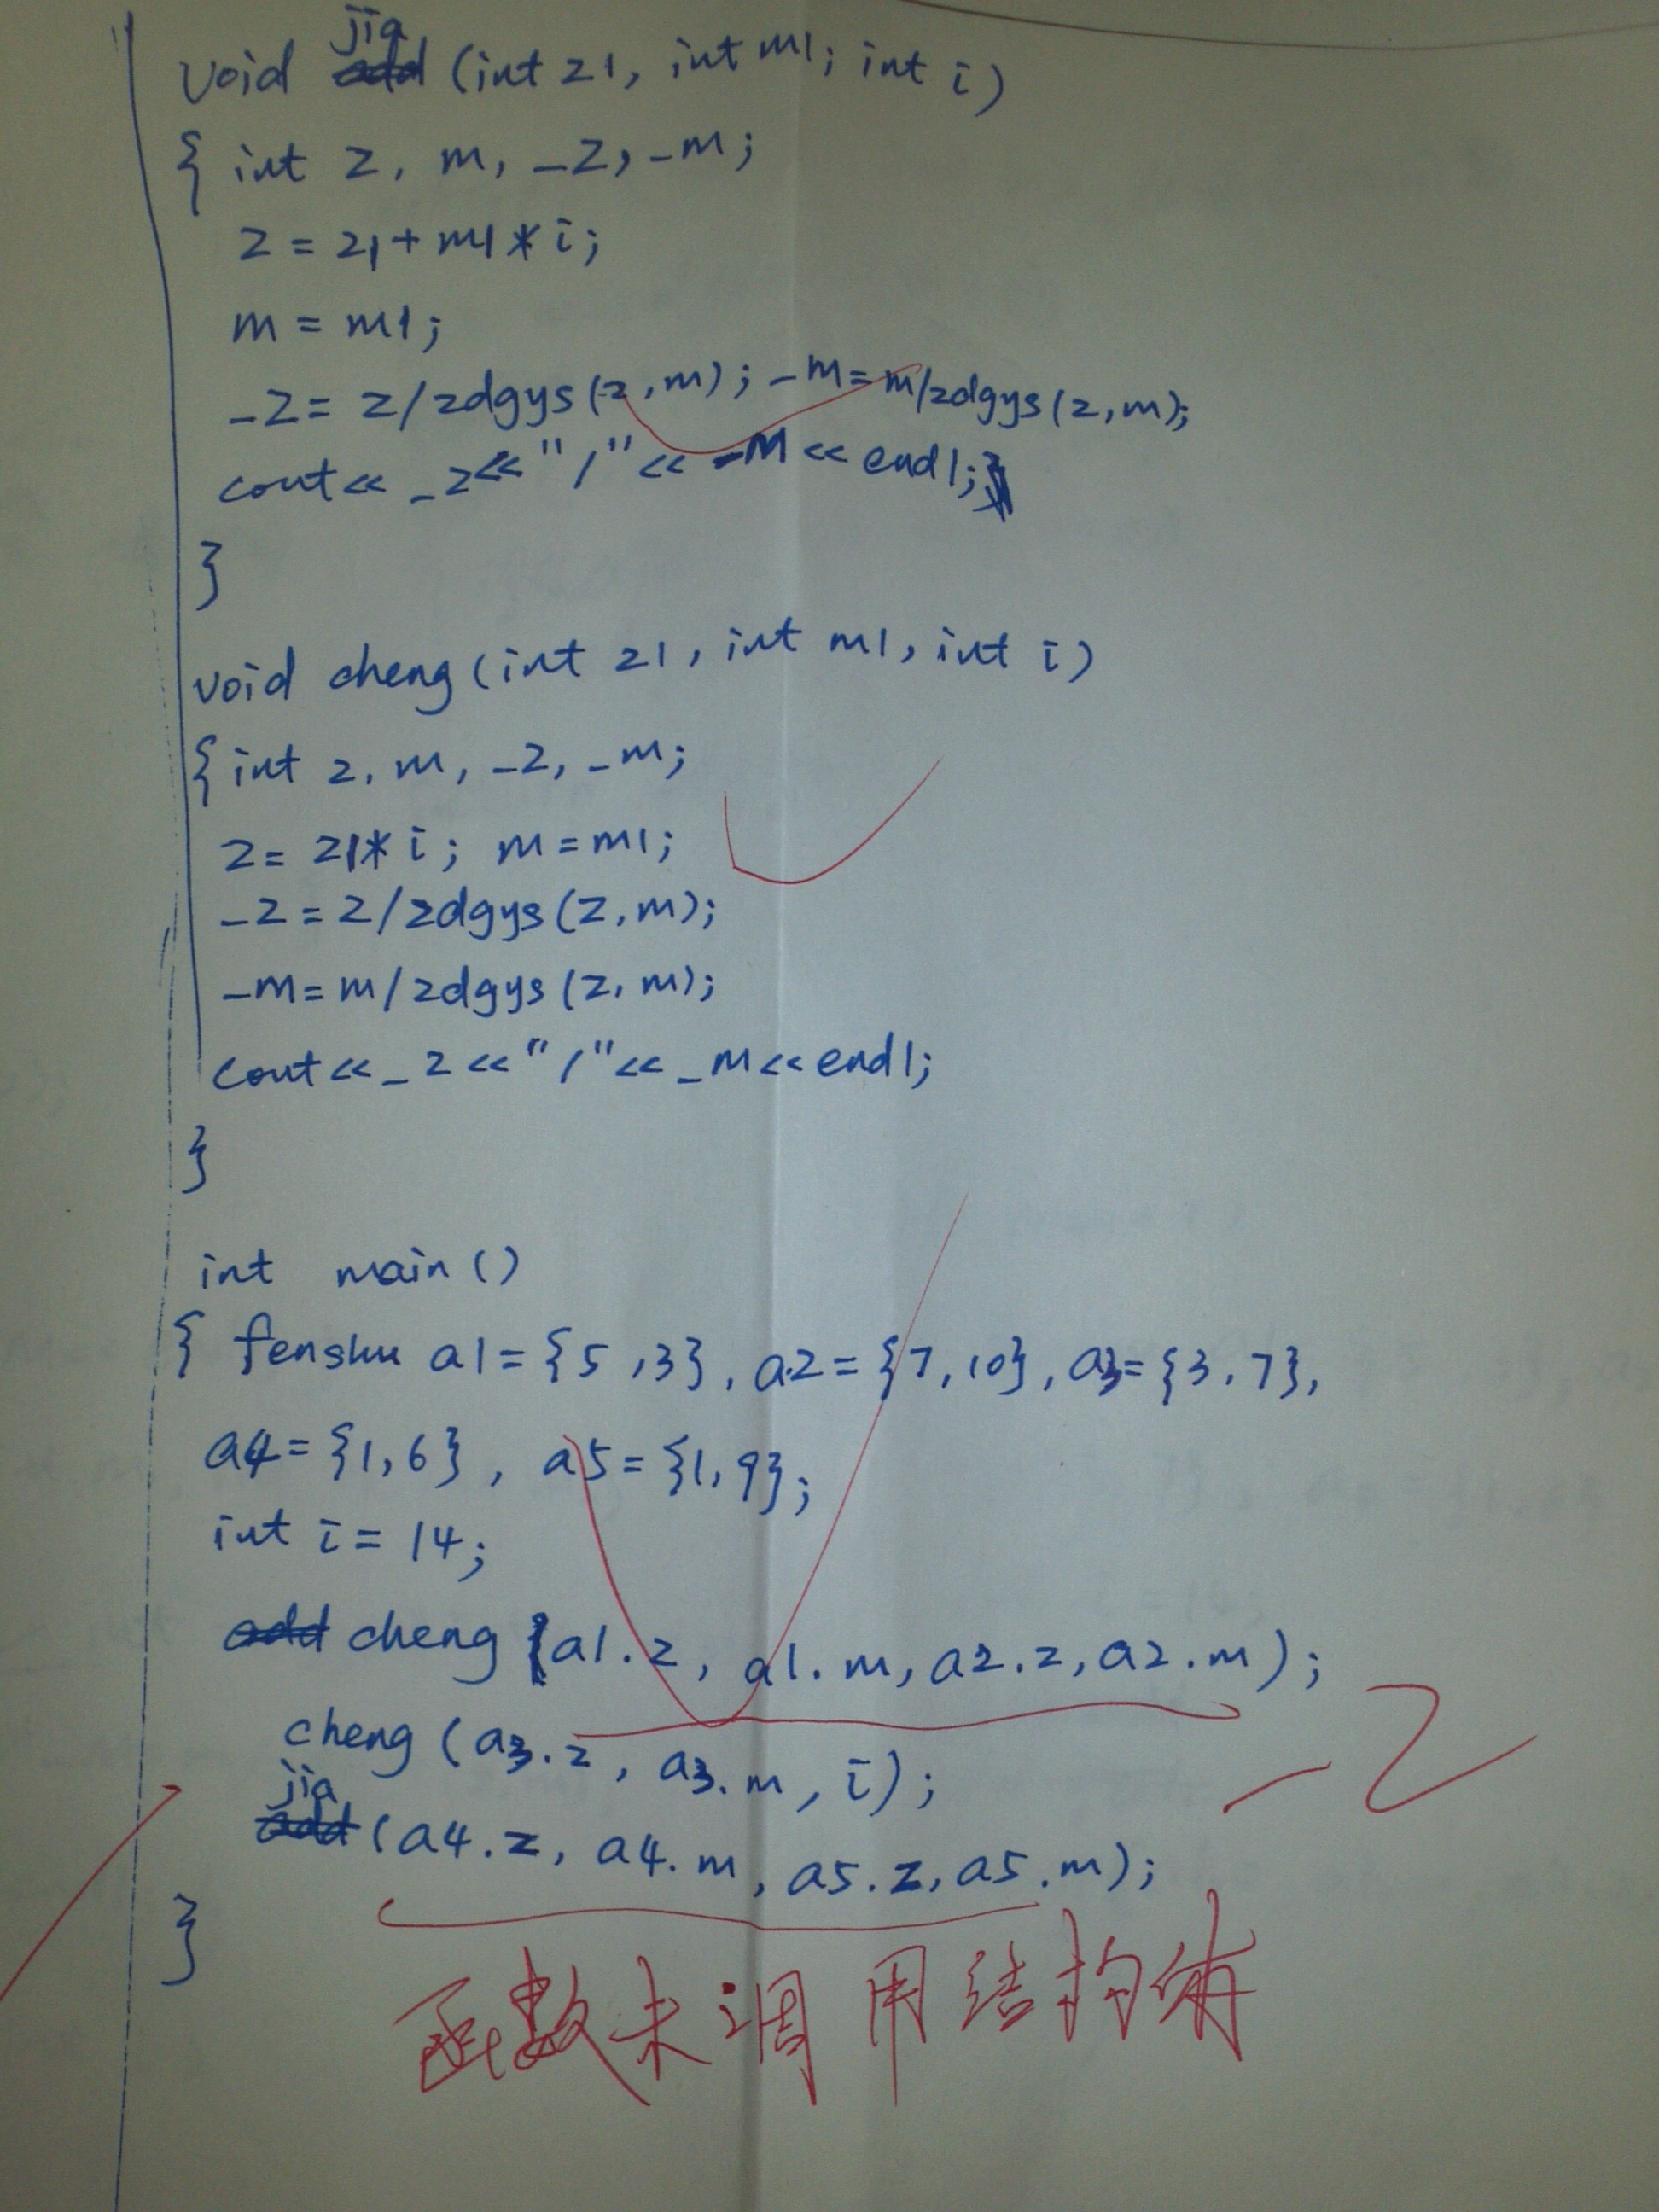 jia
void add (int z1, int m1; int i)
{ int z, m, _z, _m;
z = z1 + m1 * i;
m = m1;
_z = z/zdgys(z,m); _m = m/zdgys(z,m);
cout<< _z<<"/"<< _m << endl;
}
void cheng (int z1, int m1, int i)
{ int z, m, _z, _m;
z = z1* i; m = m1;
_z = z/zdgys(z,m);
_m = m/zdgys(z,m);
cout<< _z <<"/"<< _m<<endl;
}
int main ()
{ fenshu a1 = {5,3}, a2 = {7,10}, a3 = {3,7},
a4 = {1,6}, a5 = {1,9};
int i = 14;
add cheng (a1.z, a1.m, a2.z, a2.m);
cheng (a3.z, a3.m, i);
-2
jia
add (a4.z, a4.m, a5.z, a5.m);
}
函数未调用结构体